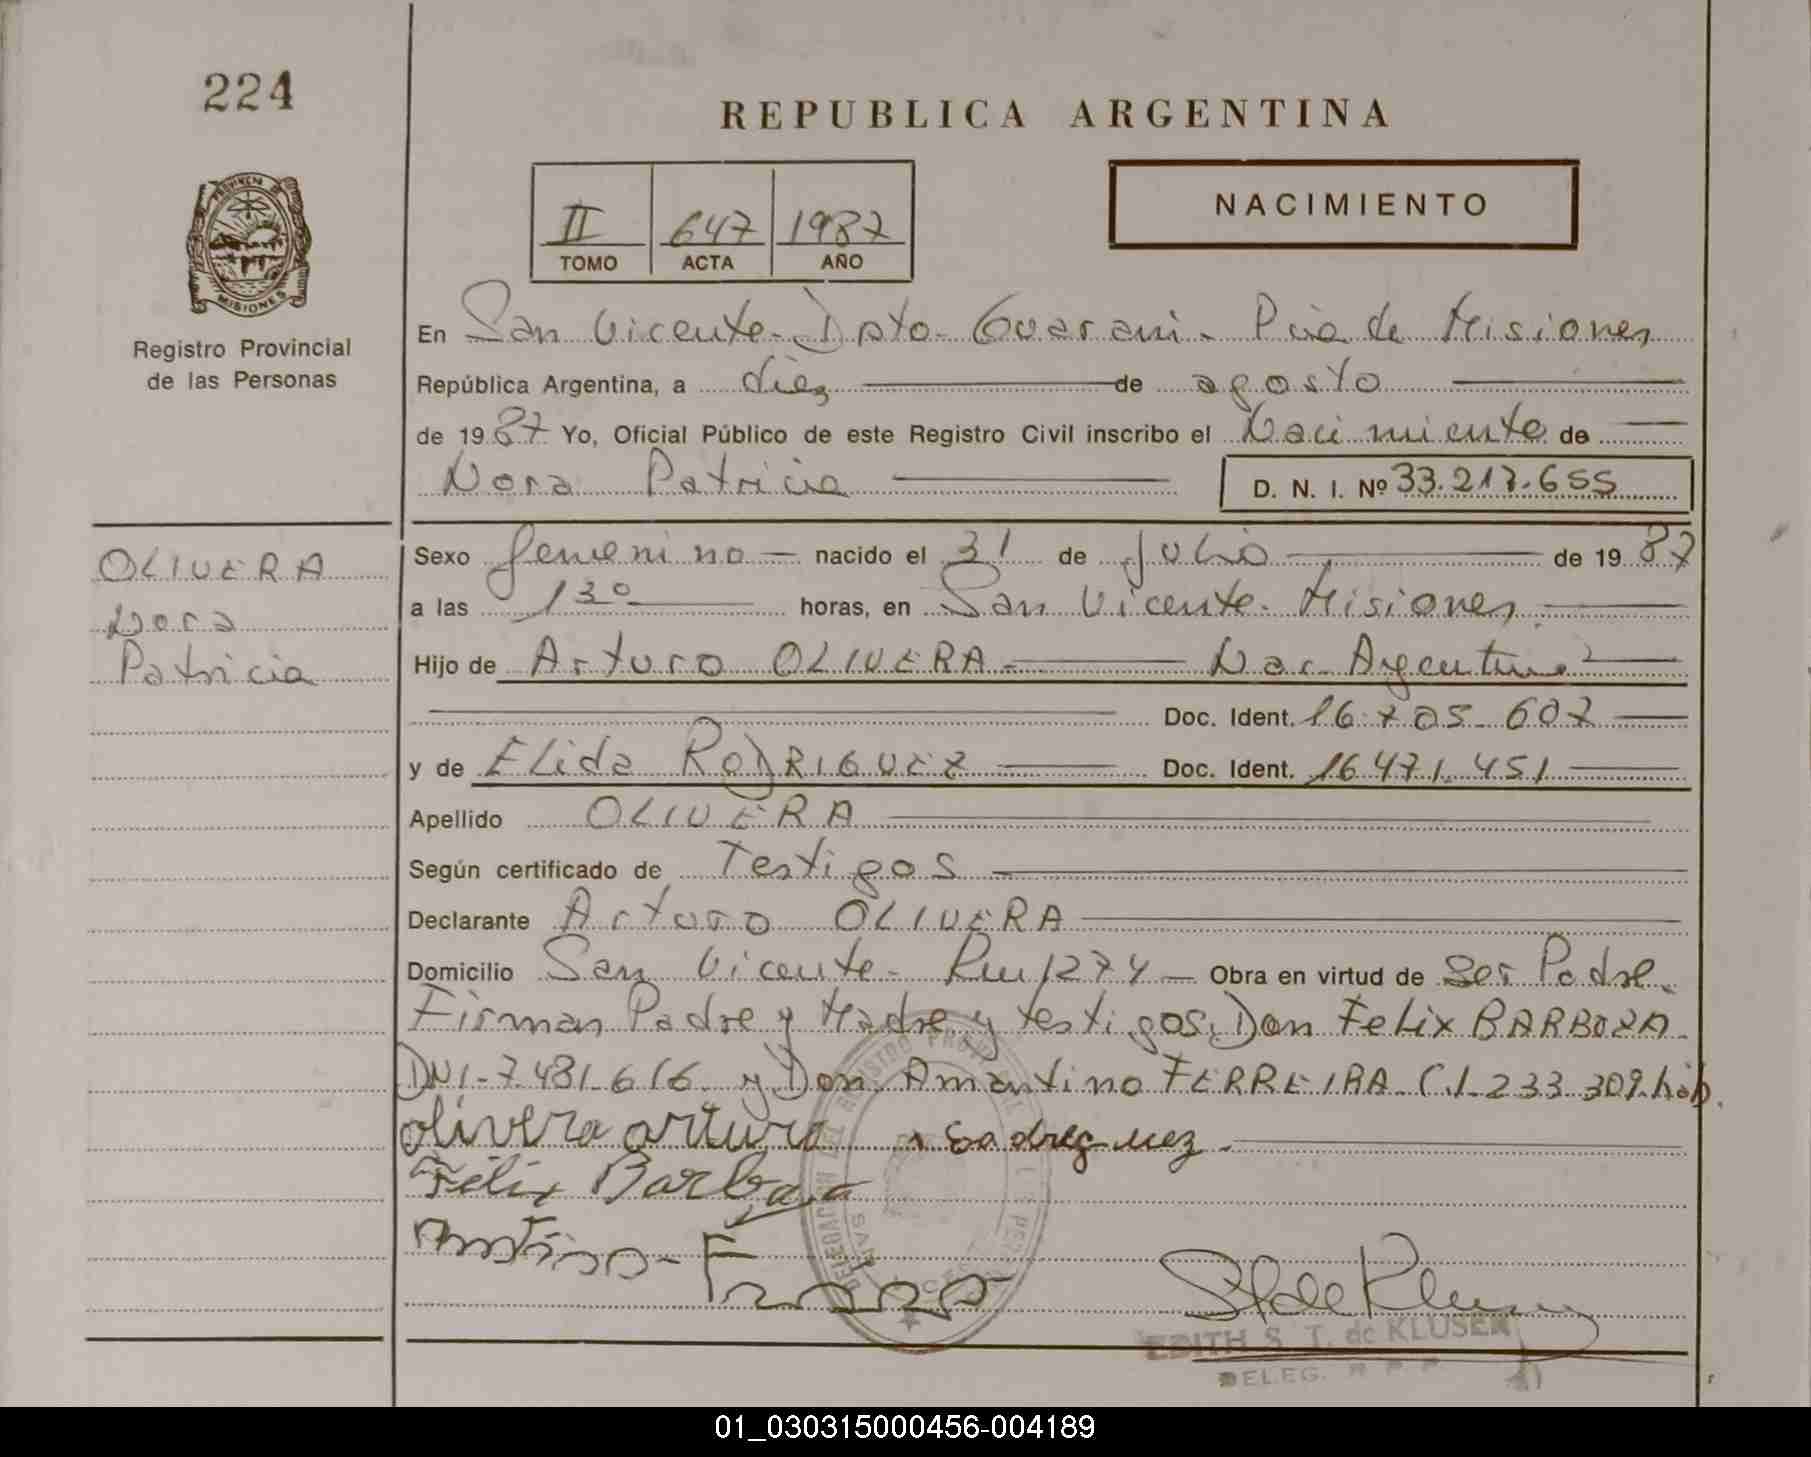 224
REPUBLICA ARGENTINA
PROVINCIA DE
MISIONES
Registro Provincial
de las Personas
II 647 1987
TOMO ACTA AÑO
NACIMIENTO
En San Vicente - Dpto - Guarani - Pcia de Misiones
República Argentina, a diez de agosto
de 1987 Yo, Oficial Público de este Registro Civil inscribo el Nacimiento de
Nora Patricia D. N. I. Nº 33.217.655
OLIVERA
Nora
Patricia
Sexo femenino nacido el 31 de Julio de 1987
a las 13º horas, en San Vicente - Misiones
Hijo de Arturo OLIVERA - Nac. Argentino
Doc. Ident. 16.705.607
y de Elida RODRIGUEZ Doc. Ident. 16.471.451
Apellido OLIVERA
Según certificado de Testigos
Declarante Arturo OLIVERA
Domicilio San Vicente - Obra en virtud de Ser Padre
Firman Padre y Madre y testigos. Don Felix BARBOZA
DNI - 7.481.616 y Don Amantino FERREIRA C.I. 233.309
olivera arturo
Felix Barboza
EDITH S. T. de KLUSER
DELEG. R P P
01_030315000456-004189